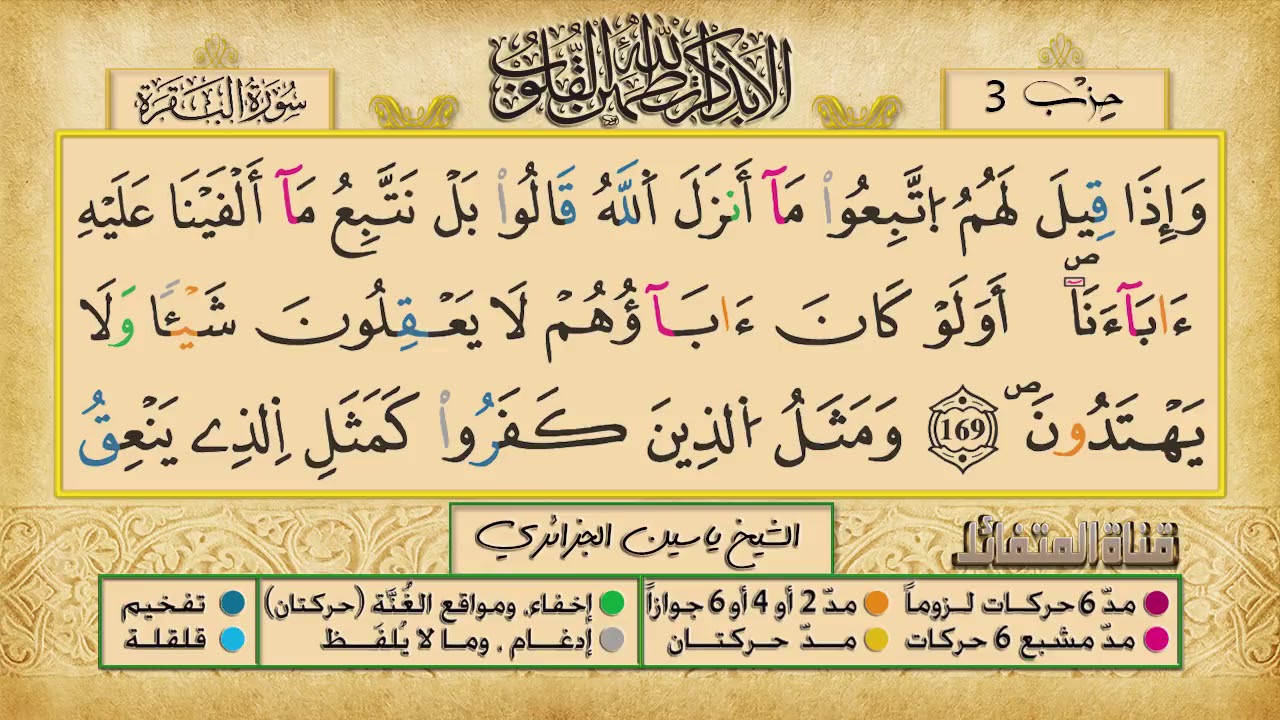 ألا بذكر الله تطمئن القلوب
حِزْب 3
سُورَةُ الْبَقَرَة
وَإِذَا قِيلَ لَهُمُ اُ۪تَّبِعُواْ مَآ أَنزَلَ اَ۬للَّهُ قَالُواْ بَلْ نَتَّبِعُ مَآ أَلْفَيْنَا عَلَيْهِ
ءَابَآءَنَاۖ أَوَلَوْ كَانَ ءَابَآؤُهُمْ لَا يَعْقِلُونَ شَيْـٔاً وَلَا
يَهْتَدُونَۖ 169 وَمَثَلُ اُ۬لذِينَ كَفَرُواْ كَمَثَلِ اِ۬لذِے يَنْعِقُ
الشيخ ياسين الجزائري
قناة المتفائل
مدّ 6 حركات لـزوماً مدّ 2 أو 4 أو 6 جوازاً إخفاء, ومواقع الغُنَّة (حركتان) تفخيم
مدّ مشبع 6 حركات مـدّ حـركتـان إدغـام , ومـا لا يُلفَـظ قلقلة